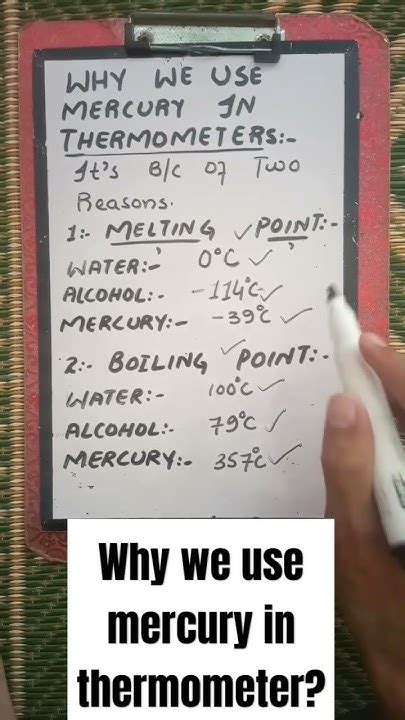 WHY WE USE
MERCURY IN
THERMOMETERS:-
It's B/C Of Two
Reasons.
1:- MELTING POINT:-
WATER:- 0°C
ALCOHOL:- -114°C
MERCURY:- -39°C
2:- BOILING POINT:-
WATER:- 100°C
ALCOHOL:- 79°C
MERCURY:- 357°C
Why we use
mercury in
thermometer?